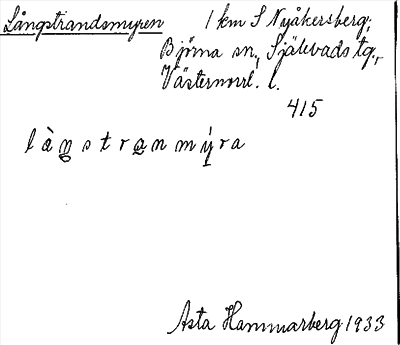 Långstrandsmyren 1 km S Nyåkersberg;
Björna sn, Själevads tg.,
Västernorrl. l.
415
l à ŋ s t r a n m ý r a
Asta Hammarberg 1933